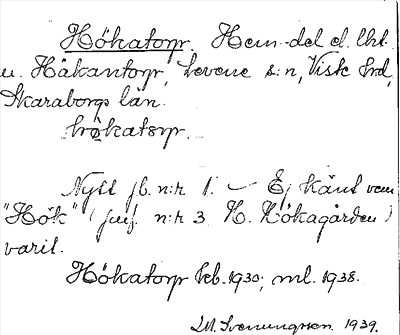 Hökatorp. Hem.del el. lht.
u. Håkantorp, Levene s:n, Viste hrd,
Skaraborgs län.
hø̀katɔrp.
Nytt jb. n:r 1. – Ej känt vem
"Hök" (jmf. n:r 3 H. Hökagården)
varit.
Hökatorp leb. 1930; ml. 1938.
M. Svenungsson. 1939.